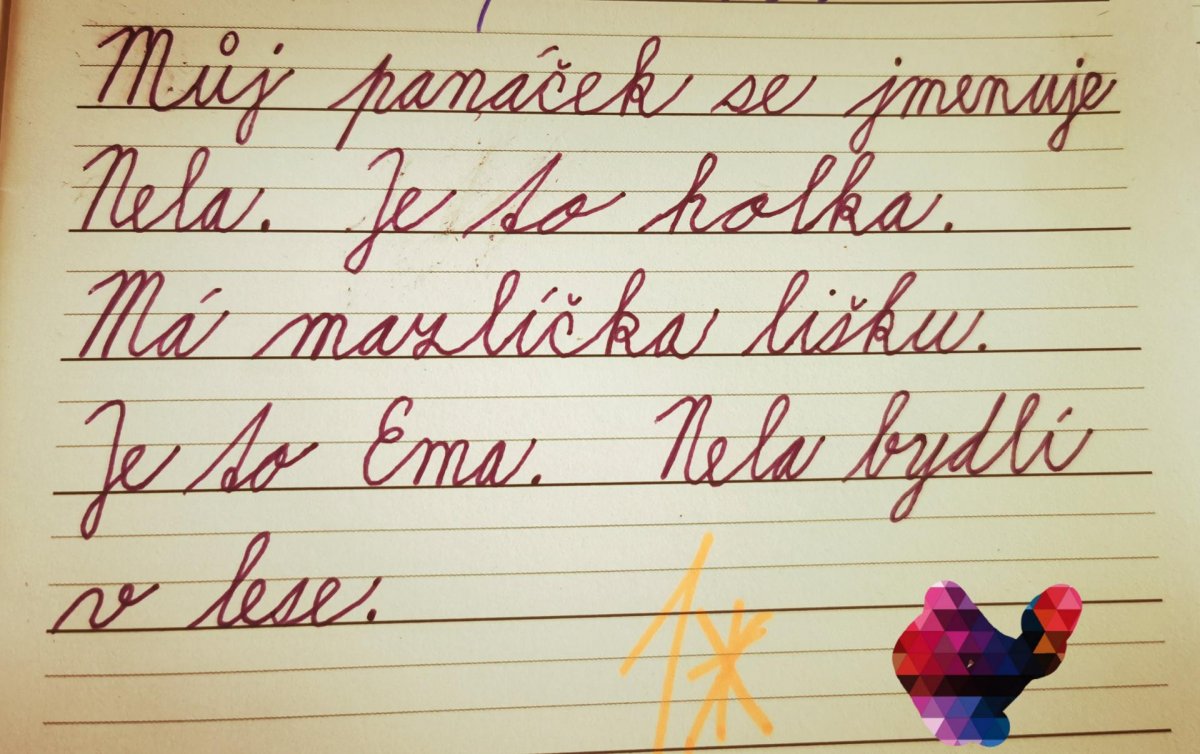 Můj panáček se jmenuje
Nela. Je to holka.
Má mazlíčka lišku.
Je to Ema. Nela bydlí
v lese.
1*